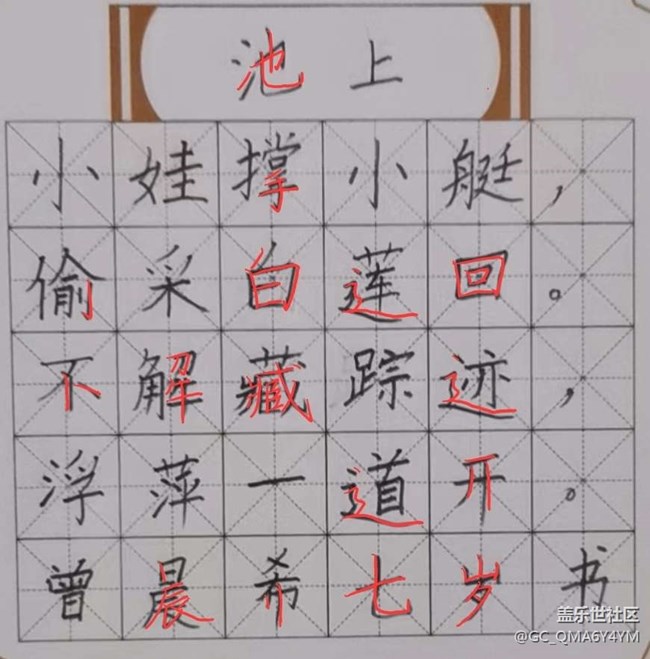 池上
小娃撑小艇，
偷采白莲回。
不解藏踪迹，
浮萍一道开。
曾晨希七岁书
盖乐世社区
@GC_QMA6Y4YM